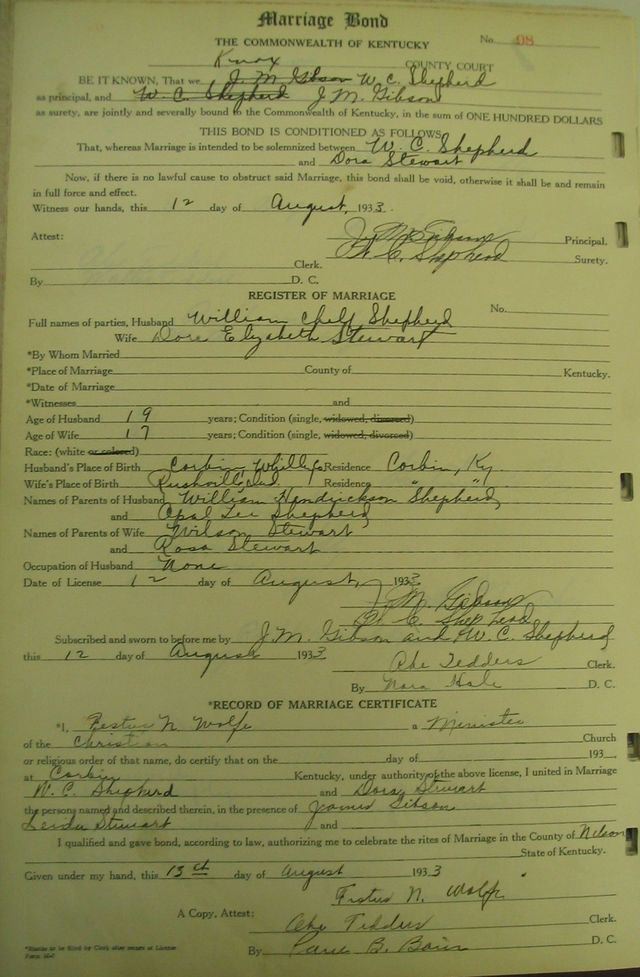 Marriage Bond
THE COMMONWEALTH OF KENTUCKY No. 98
Knox COUNTY COURT
BE IT KNOWN, That we J. M. Gibson W. C. Shepherd
as principal, and W. C. Shepherd J. M. Gibson
as surety, are jointly and severally bound to the Commonwealth of Kentucky, in the sum of ONE HUNDRED DOLLARS
THIS BOND IS CONDITIONED AS FOLLOWS
That, whereas Marriage is intended to be solemnized between W. C. Shepherd
and Dora Stewart
Now, if there is no lawful cause to obstruct said Marriage, this bond shall be void, otherwise it shall be and remain
in full force and effect.
Witness our hands, this 12 day of August, 1933.
Attest: J. M. Gibson Principal.
W. C. Shepherd Surety.
Clerk.
By D. C.
REGISTER OF MARRIAGE
No.
Full names of parties, Husband William Shepherd
Wife Dora Elizabeth Stewart
*By Whom Married
*Place of Marriage County of Kentucky.
*Date of Marriage
*Witnesses and
Age of Husband 19 years; Condition (single, widowed, divorced)
Age of Wife 17 years; Condition (single, widowed, divorced)
Race: (white or colored)
Husband's Place of Birth Corbin Residence Corbin, Ky
Wife's Place of Birth Residence " "
Names of Parents of Husband William Hendrickson Shepherd
and Opal Lee Shepherd
Names of Parents of Wife Wilson Stewart
and Rosa Stewart
Occupation of Husband None
Date of License 12 day of August, 1933
J. M. Gibson
W. C. Shepherd
Subscribed and sworn to before me by J. M. Gibson and W. C. Shepherd
this 12 day of August 1933
Abe Tedders Clerk.
By Nora Hale D. C.
*RECORD OF MARRIAGE CERTIFICATE
*I, Festus N. Wolfe a Minister
of the Christian Church
or religious order of that name, do certify that on the day of 193
at Corbin Kentucky, under authority of the above license, I united in Marriage
W. C. Shepherd and Dora Stewart
the persons named and described therein, in the presence of James Gibson
Stewart and
I qualified and gave bond, according to law, authorizing me to celebrate the rites of Marriage in the County of Nelson
State of Kentucky.
Given under my hand, this 13 day of August 1933
Festus N. Wolfe
A Copy, Attest: Abe Tedders Clerk.
By B. D. C.
*Blanks to be filled by Clerk after return of License